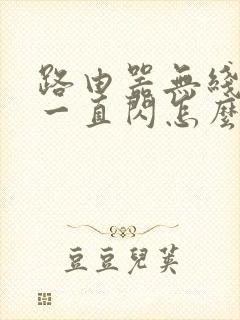 路由器無綫
一直閃怎麼
豆豆兒英